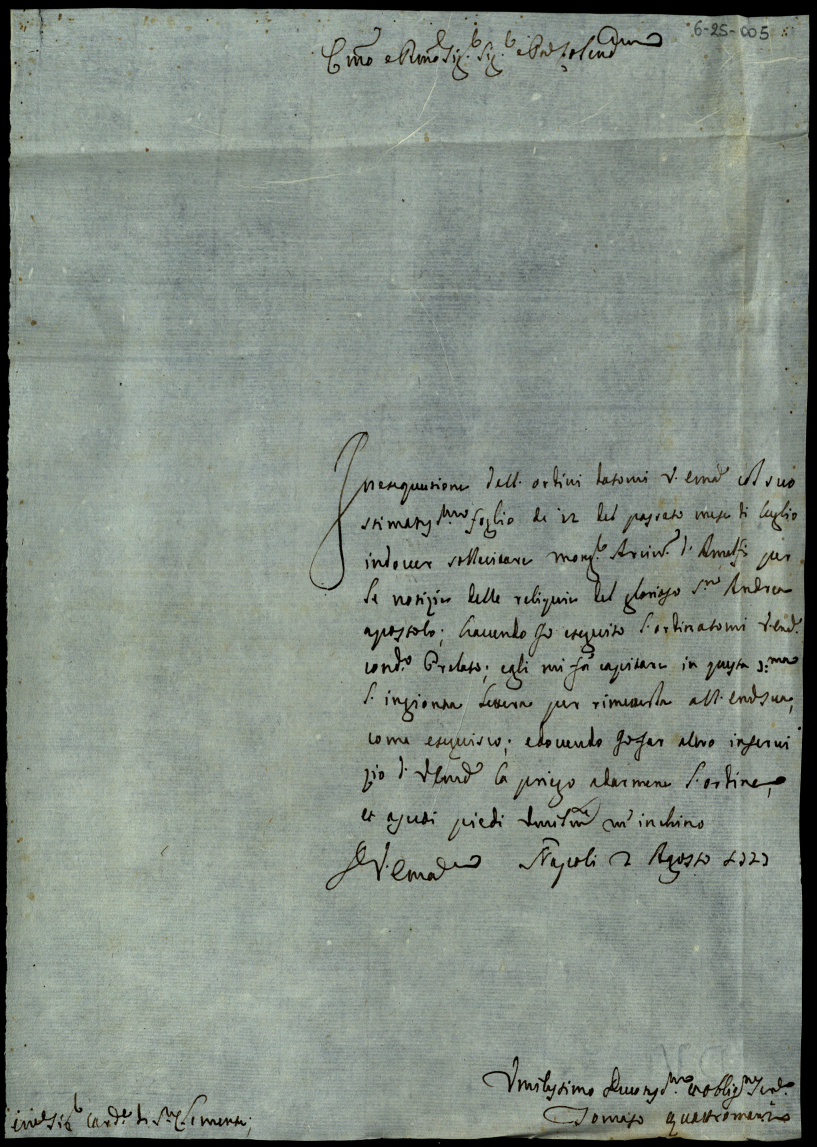 6-25-005
Emo e Rmo Sig.r Sig.r e Pad
In esequzione dell. ordini datomi V. Emã col suo
stimatiss.mo foglio de 12 del passato mese di luglio
in dover sollecitare mons.r Arciv.o d'Amalfi per
le notizie delle reliquie del glorioso S.no Andrea
apostolo; havendo Io eseguito l'ordinatomi V. Em.
con d.o Prelato; egli mi fà capitare in questa
l'ingionta lettera per rimetterla all'
come esequisco; e dovendo Io far altro in servi
zio di V. Em. la priego a darmene l'ordine,
et a suoi piedi umilm.e m'inchino
Di V. Em. Napoli 2 Agosto 1727
Umilissimo Devotiss.mo et obblig.mo Ser.
Tomaso quattromani
Sig.r Card.e di S.n Clemente;